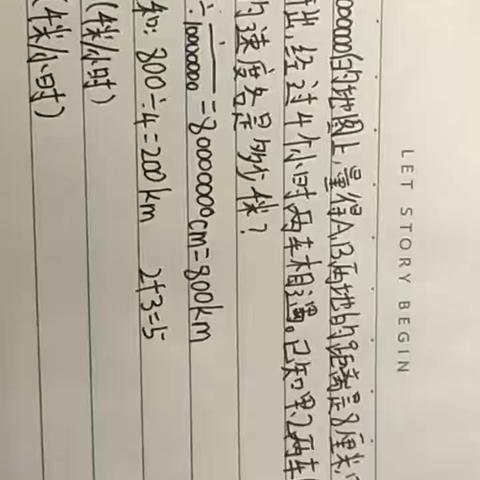 LET STORY BEGIN
00000的地图上,量得A,B两地的距离是8厘米,
出,经过4个小时两车相遇。已知甲、乙两车
的速度各是多少千米?
÷1/10000000=80000000cm=800km
和: 800÷4=200km 2+3=5
(千米/小时)
(千米/小时)